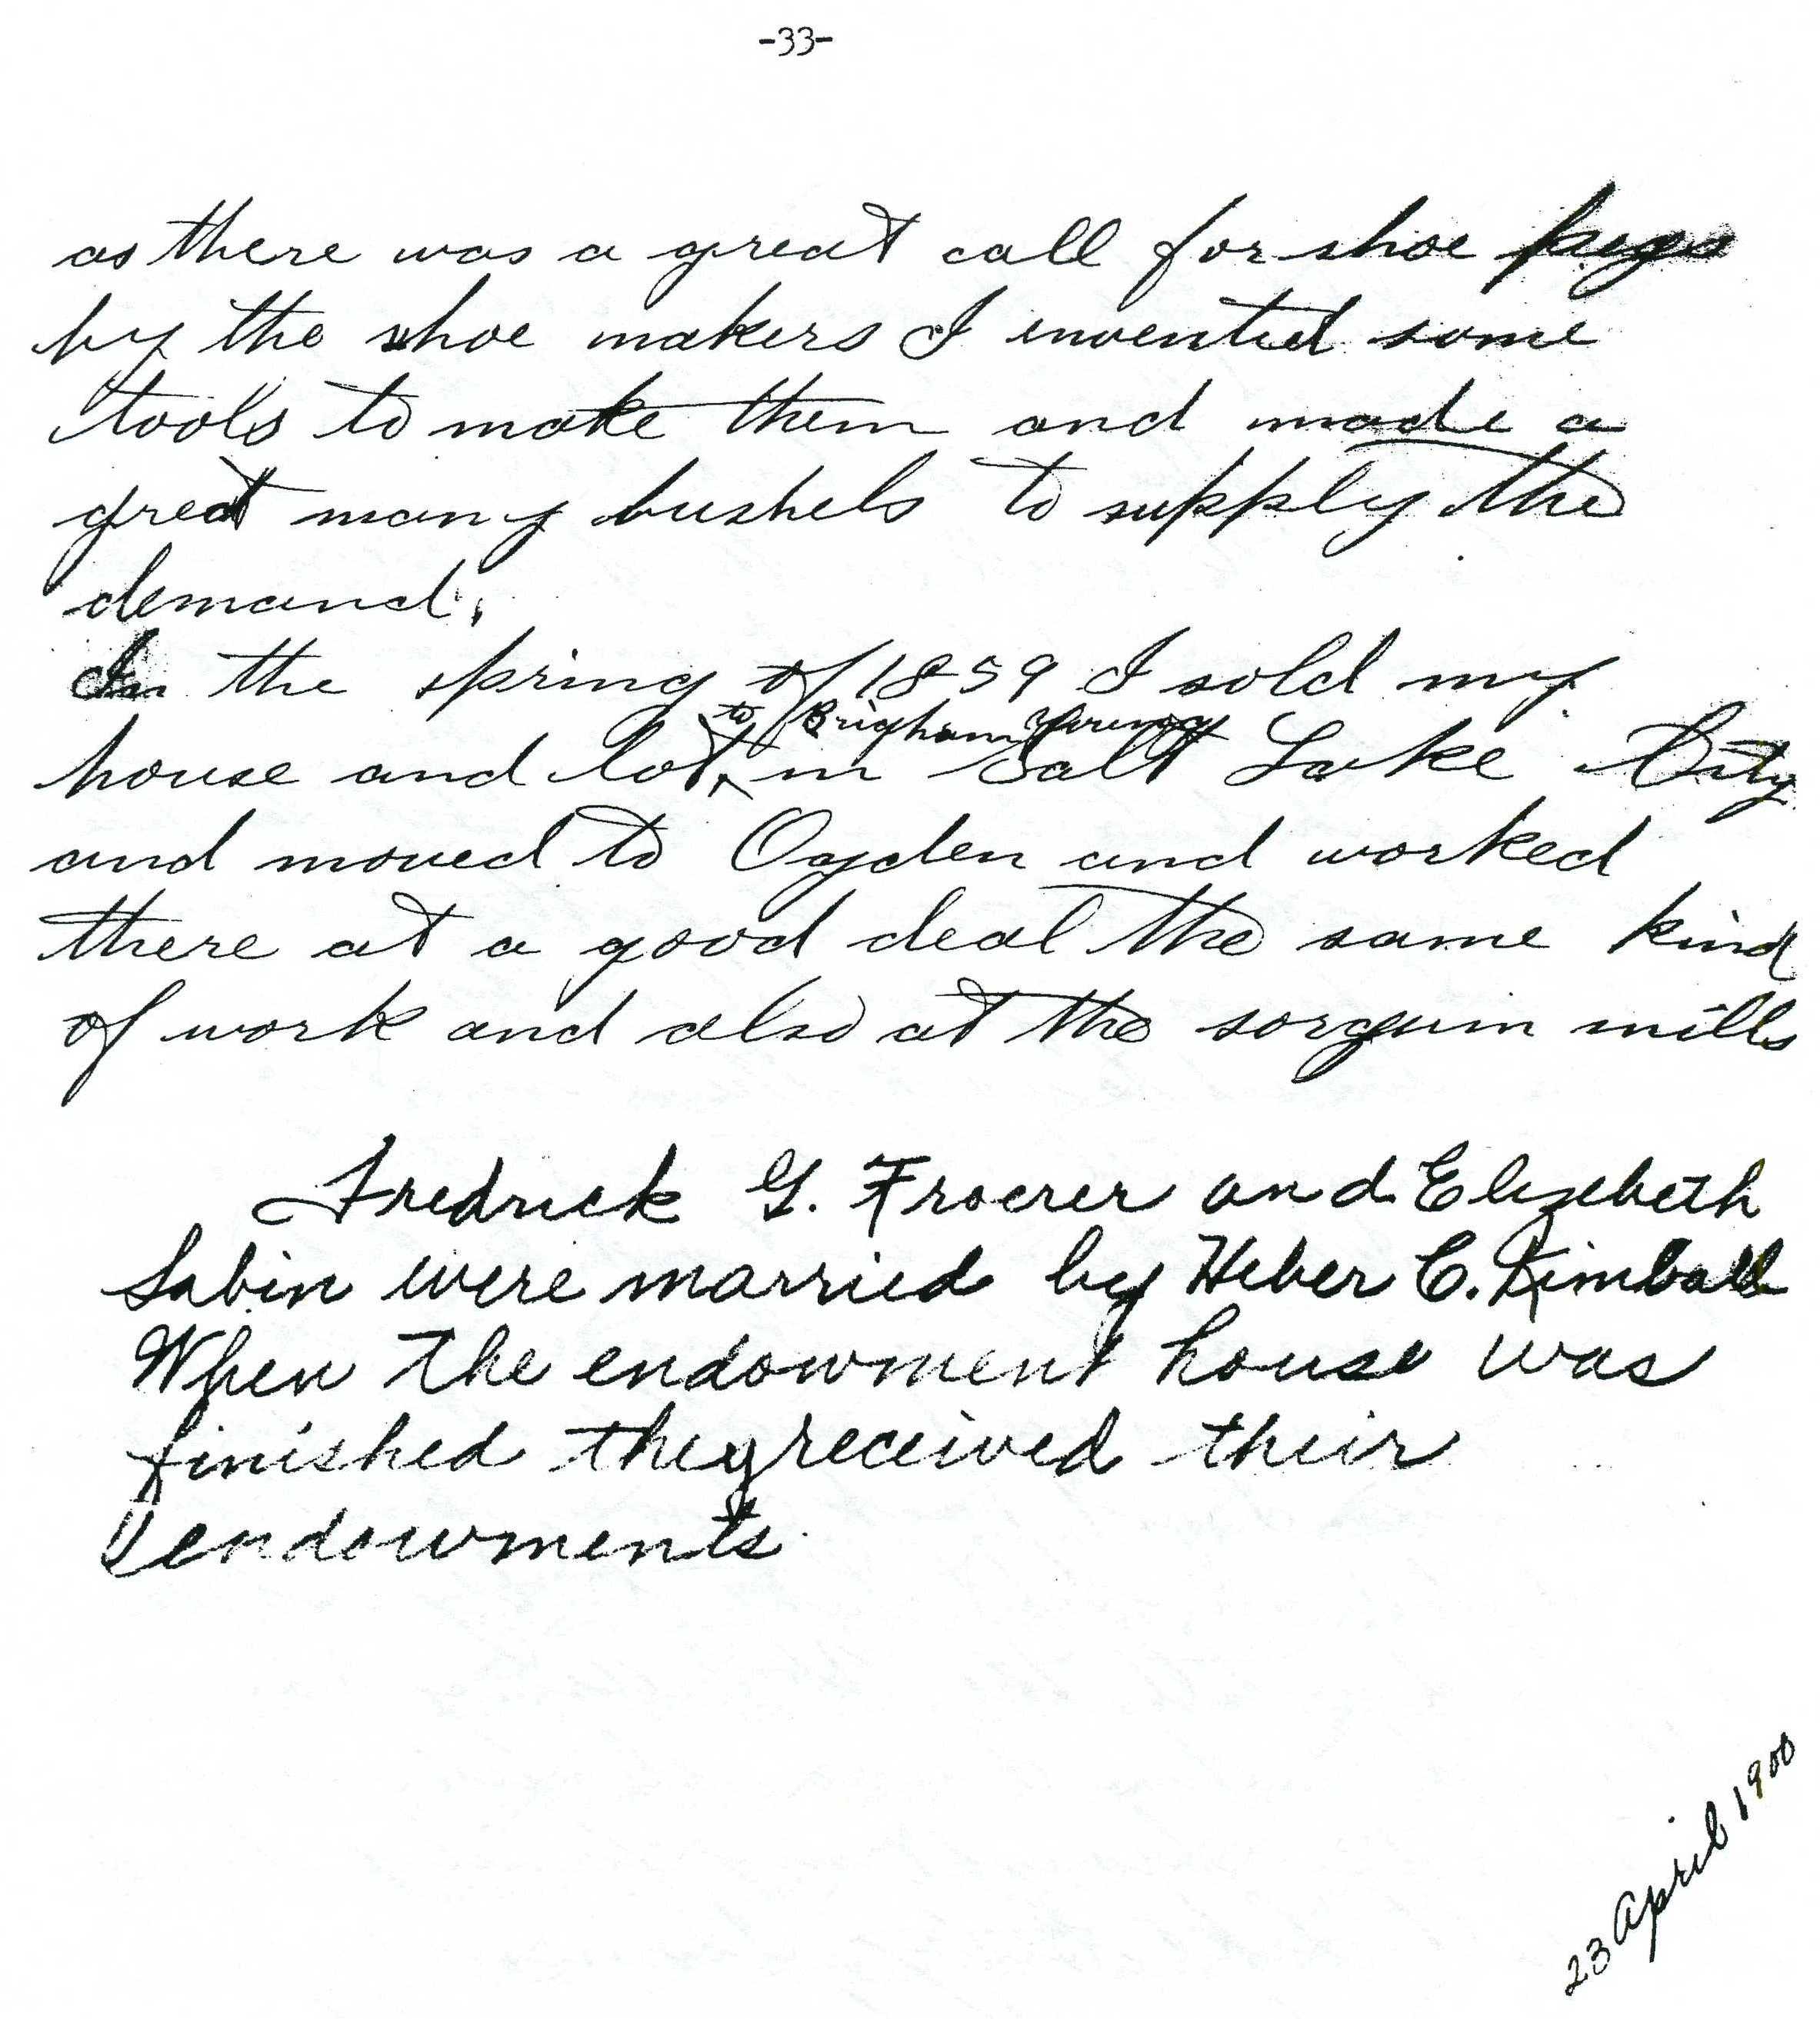 -33-
as there was a great call for shoe pegs
by the shoe makers I invented some
tools to make them and made a
great many bushels to supply the
demand.
In the spring of 1859 I sold my
to Brigham Young
house and lot in Salt Lake City
and moved to Ogden and worked
there at a good deal the same kind
of work and also at the sorguim mills
Fredrick G. Froerer and Elizebeth
Sabin were married by Heber C. Kimball
When the endowment house was
finished they received their
endowments
23 April 1900